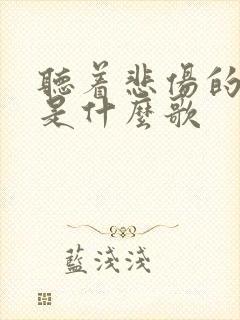 聽着悲傷的
是什麼歌
藍淺淺